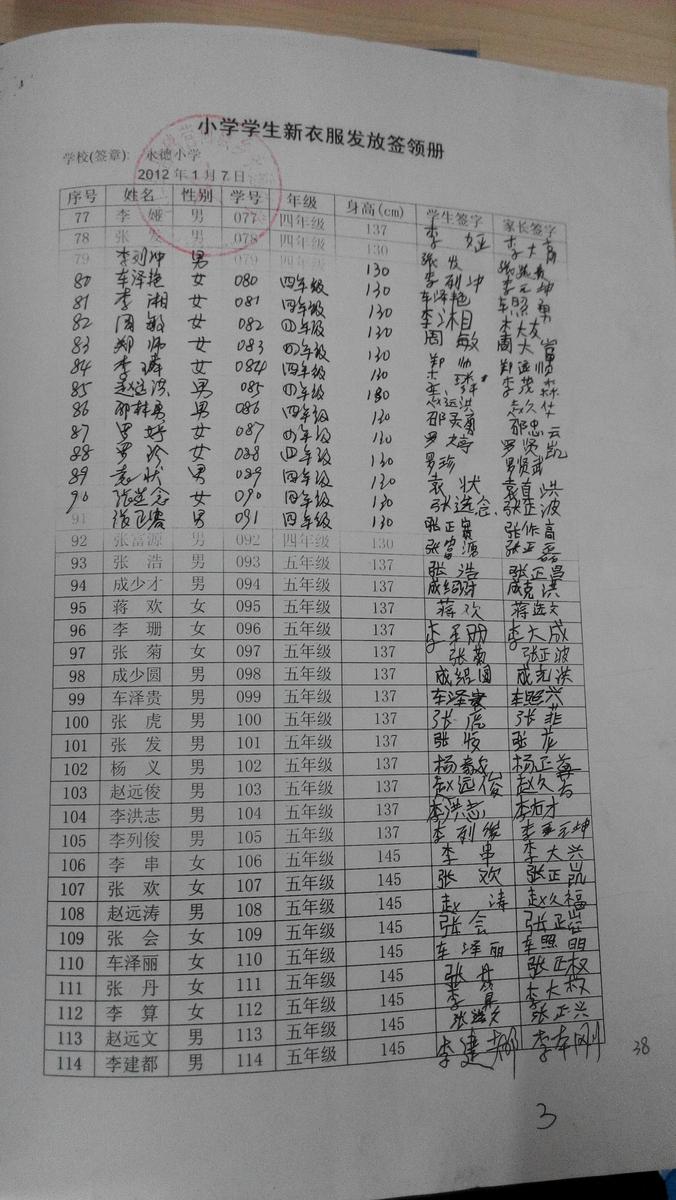 小学学生新衣服发放签领册
学校(签章): 永德小学
2012年1月7日
序号 姓名 性别 学号 年级 身高(cm) 学生签字 家长签字
77 李娅 男 077 四年级 137 李娅 李大高
78 张发 男 078 四年级 130 张发
79 李列坤 男 079 四年级 130 李列坤
80 车泽艳 女 080 四年级 130 车泽艳 车照勇
81 李湘 女 081 四年级 130 李湘 李大友
82 周敏 女 082 四年级 130 周敏 周大富
83 郑帅 女 083 四年级 130 郑帅
84 李璘 女 084 四年级 130 李茂森
85 赵远洪 男 085 四年级 130 赵远洪
86 邵林勇 男 086 四年级 130 邵忠云
87 罗婷 女 087 四年级 130 罗婷 罗贤凯
88 罗珍 女 088 四年级 130 罗珍 罗贤武
89 袁状 男 089 四年级 130 袁状 袁直洪
90 张选念 女 090 四年级 130 张选念 张正波
91 男 091 四年级 130 张作高
92 张富源 男 092 四年级 130 张富源
93 张浩 男 093 五年级 137 张浩 张正昌
94 成少才 男 094 五年级 137 成克洪
95 蒋欢 女 095 五年级 137 蒋欢 蒋选文
96 李珊 女 096 五年级 137 李珊 李大成
97 张菊 女 097 五年级 137 张菊 张正波
98 成少圆 男 098 五年级 137 成绍圆 成克洪
99 车泽贵 男 099 五年级 137 车泽贵 车照兴
100 张虎 男 100 五年级 137 张虎 张菲
101 张发 男 101 五年级 137 张发 张龙
102 杨义 男 102 五年级 137 杨毅 杨正
103 赵远俊 男 103 五年级 137 赵远俊 赵久
104 李洪志 男 104 五年级 137 李洪志 李右才
105 李列俊 男 105 五年级 137 李列俊 李元坤
106 李串 女 106 五年级 145 李串 李大兴
107 张欢 女 107 五年级 145 张欢 张正凯
108 赵远涛 男 108 五年级 145 赵涛 赵久福
109 张会 女 109 五年级 145 张会 张正
110 车泽丽 女 110 五年级 145 车泽丽 车照明
111 张丹 女 111 五年级 145 张丹 张正权
112 李算 女 112 五年级 145 李算 李大权
113 赵远文 男 113 五年级 145 张正兴
114 李建都 男 114 五年级 145 李建都 李本刚
38
3